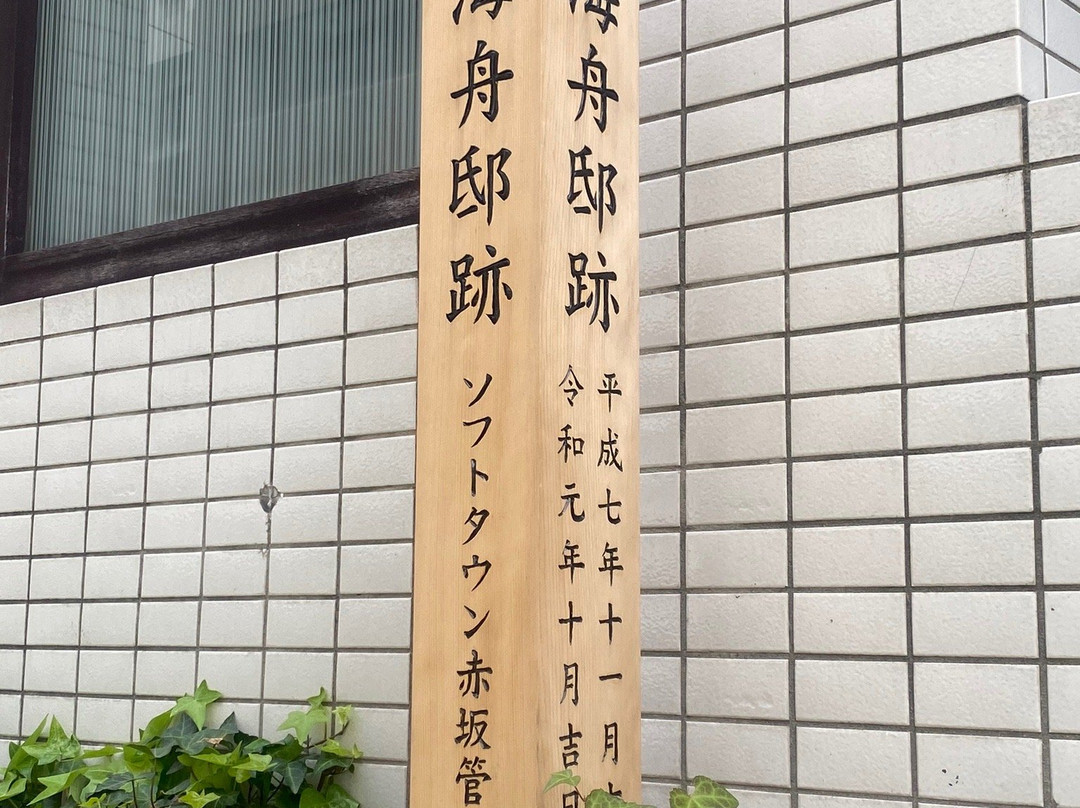 海舟邸跡
ソフトタウン赤坂管
海舟邸跡
平成七年十一月
令和元年十月吉日